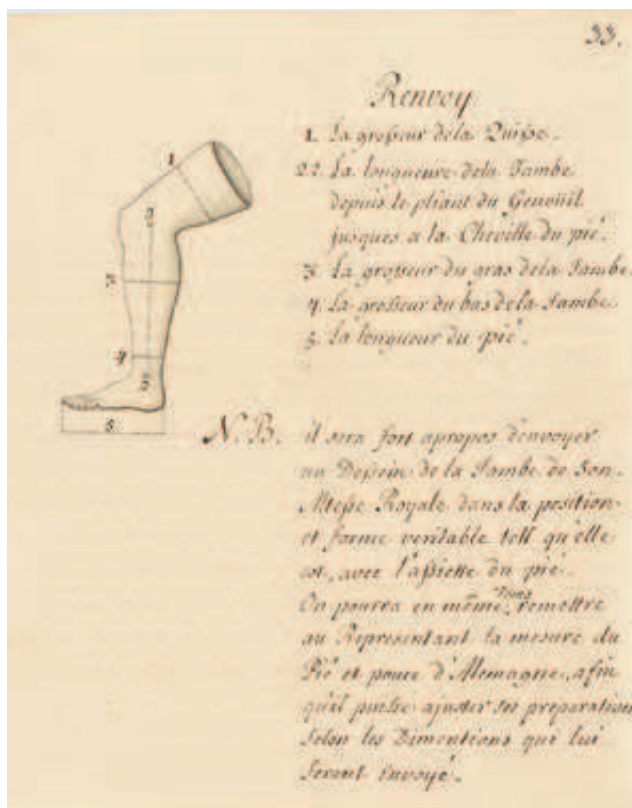 33.
Renvoy
1. La grosseur dela Quisse.
2.2. La longueure dela Jambe
depuis le pliant du Genoüil
jusques a la Cheville du pié.
3. La grosseur du gras dela Jambe.
4. La grosseur du bas dela Jambe
5. La longueur du pié.
1
2
3
4
2
5
N.B. il sera fort apropos d'envoyer
un Dessein de la Jambe de Son
Altesse Royale dans la position
et forme veritable tell qu'elle
est, avec l'assiette du pié.
On pourra en même tems remettre
au Representant la mesure du
Pié et pouce d'Alemagne, afin
qu'il puisse ajuster ses preparations
selon les Dimentions que lui
seront envoyé.